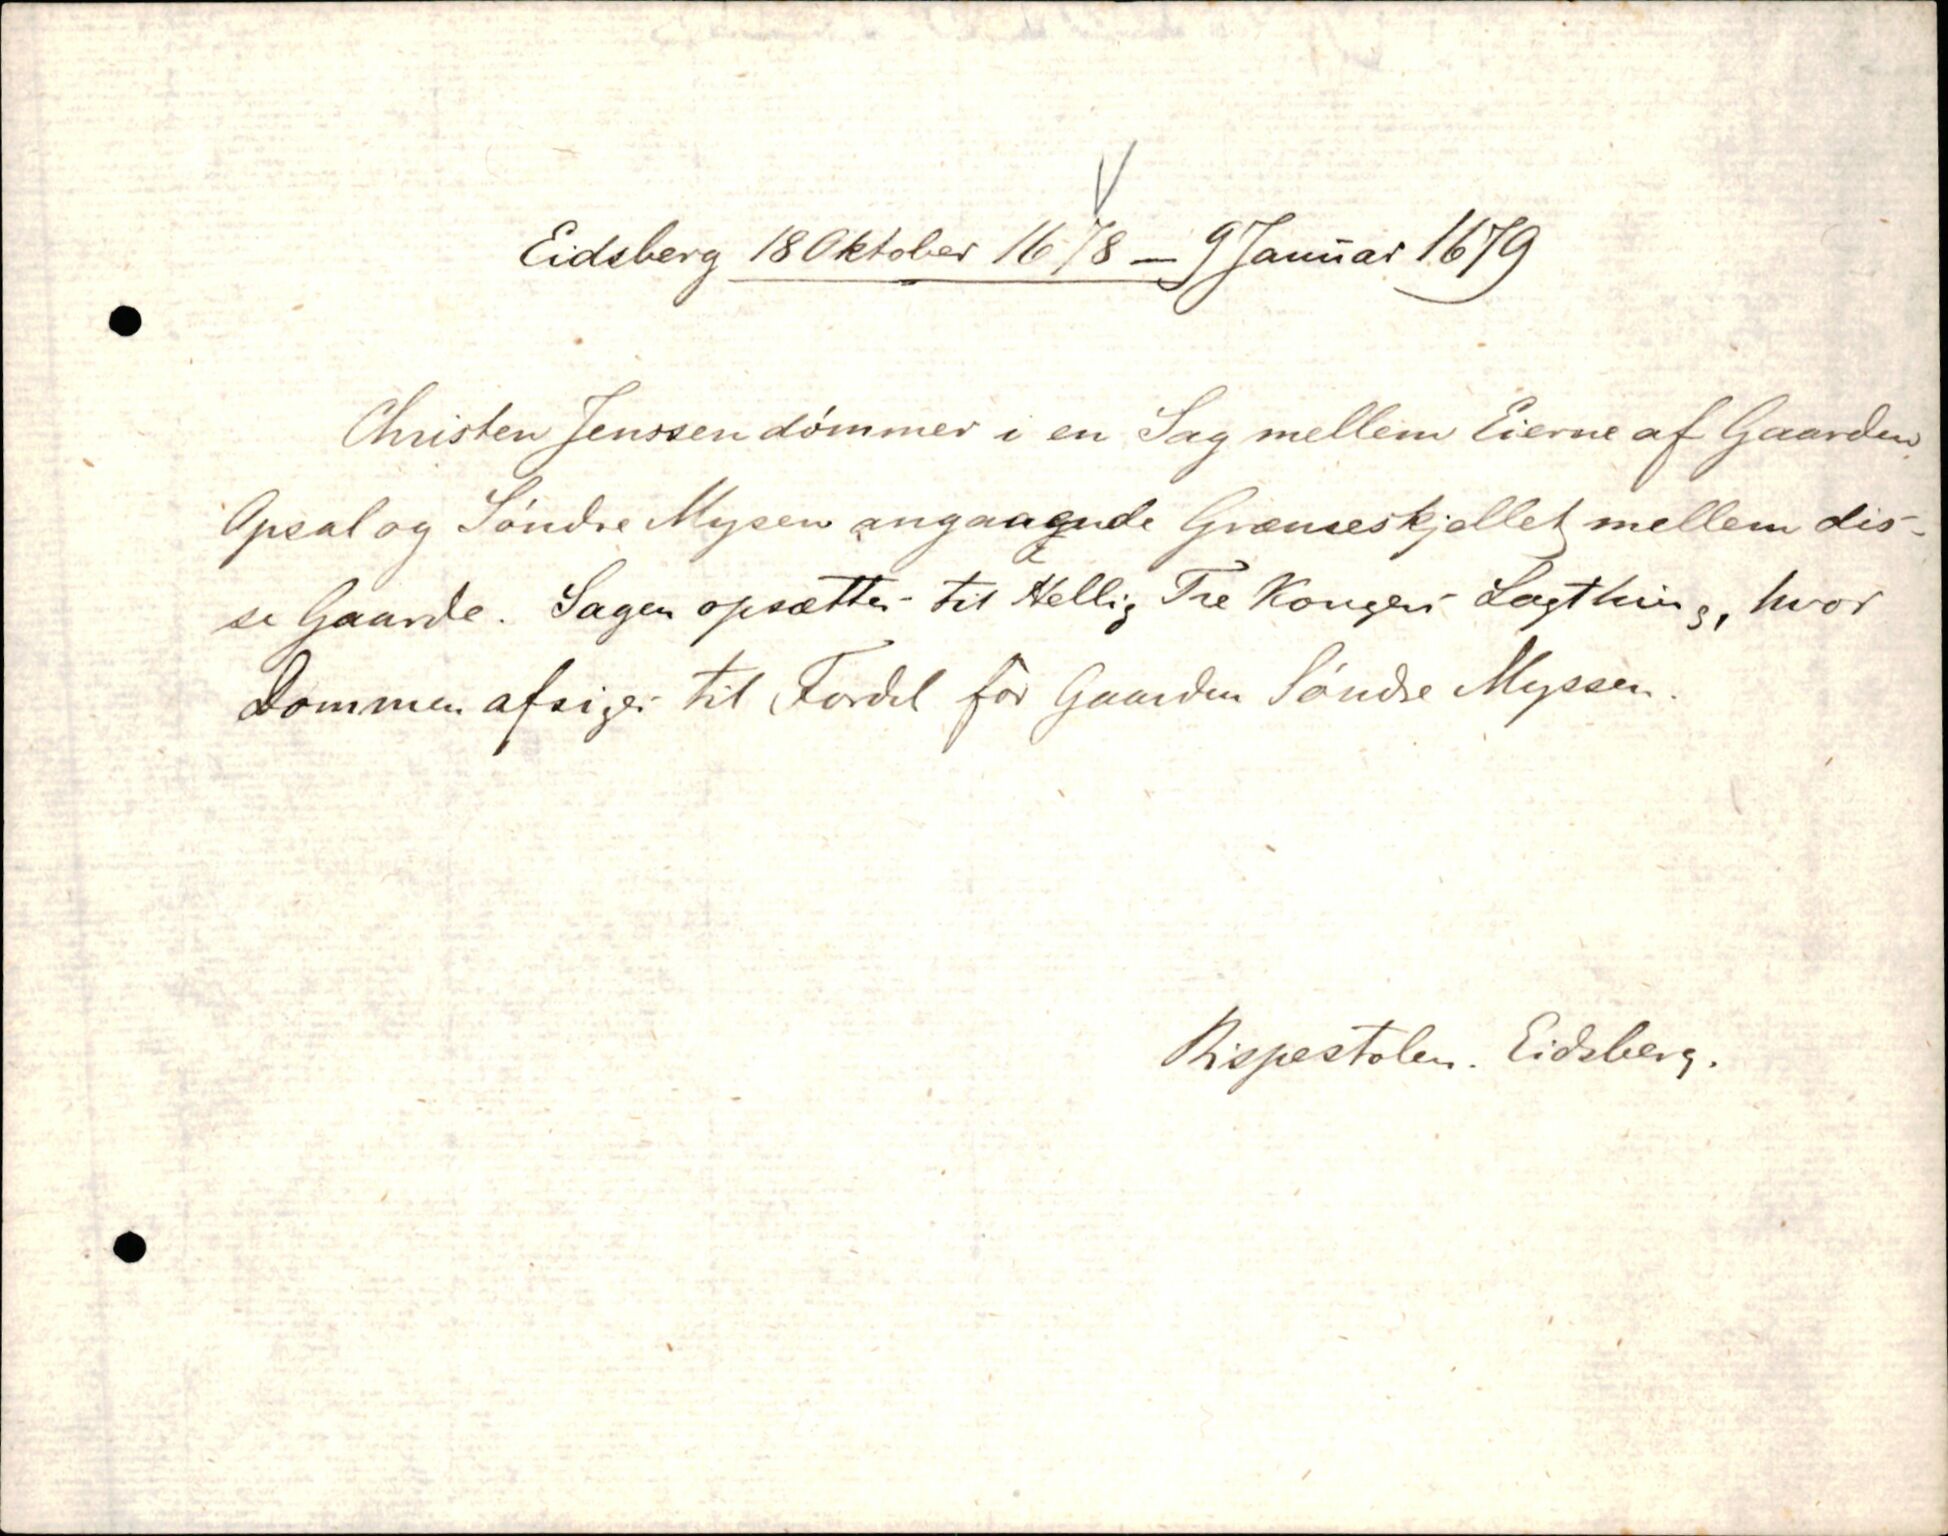 Eidsberg 18 Oktober 1678 — 9 Januar 1679
Christen Jenssen dømmer i en Sag mellem Eierne af Gaarden
Opsal og Søndre Mysen angaaende Grænseskjellet mellem dis-
se Gaarde. Sagen opsættes til Hellig Tre Kongers Lagthing, hvor
Dommen afsiges til Fordel for Gaarden Søndre Myssen.
Rispestolen. Eidsberg.